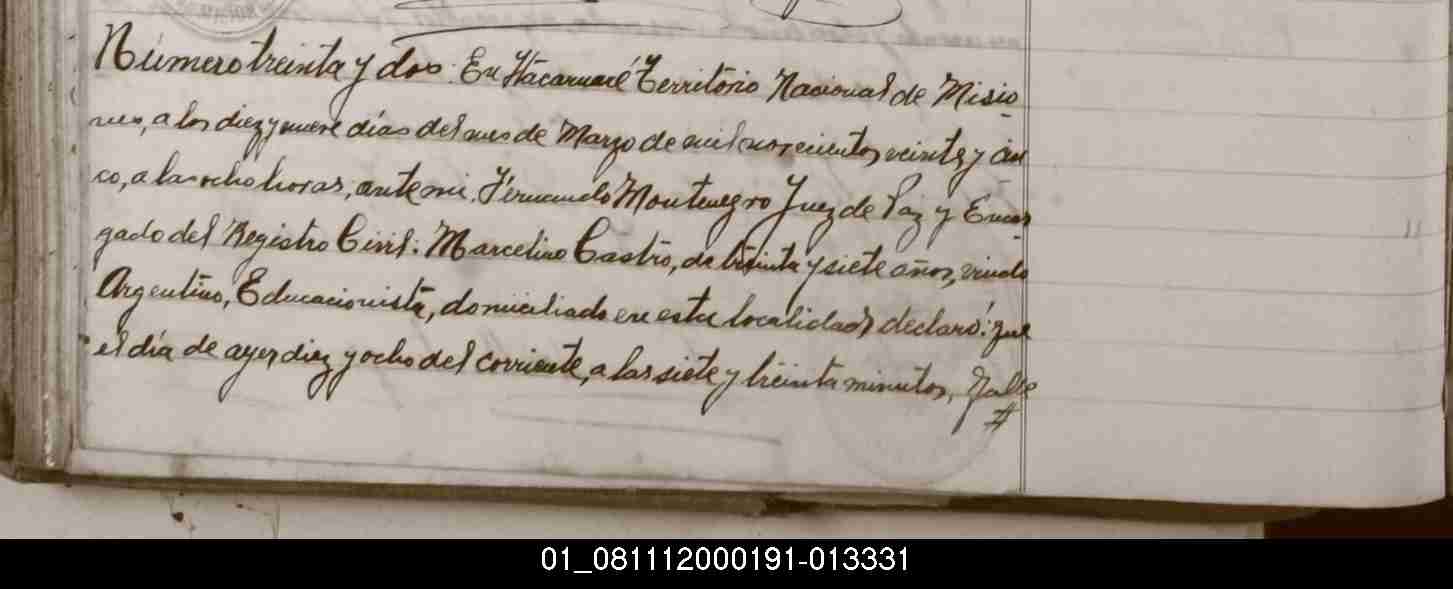 Número treinta y dos: En Itacaruaré Territorio Nacional de Misio-
nes, a los diez y nueve días del mes de Marzo de mil novecientos veinte y cin-
co, a las ocho horas, ante mi, Fernando Montenegro Juez de Paz y Encar-
gado del Registro Civil: Marcelino Castro, de treinta y siete años, viudo
Argentino, Educacionista, domiciliado en esta localidad declaró: que
el día de ayer, diez y ocho del corriente, a las siete y treinta minutos, falle
01_081112000191-013331